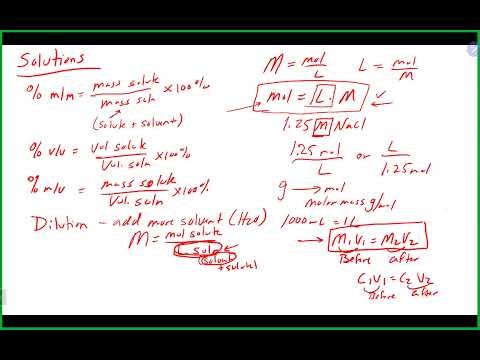 Solutions
% m/m = mass solute / mass soln × 100%
(solute + solvent)
% v/v = Vol solute / Vol. soln × 100%
% m/v = mass solute / Vol. soln × 100%
Dilution - add more solvent (H2O)
M = mol solute / L soln
solvent
+ solute
M = mol / L    L = mol / M
mol = L · M
1.25 M NaCl
1.25 mol / L or L / 1.25 mol
g → mol
molar mass g/mol
1000 mL = 1 L
M1V1 = M2V2
Before after
C1V1 = C2V2
Before after